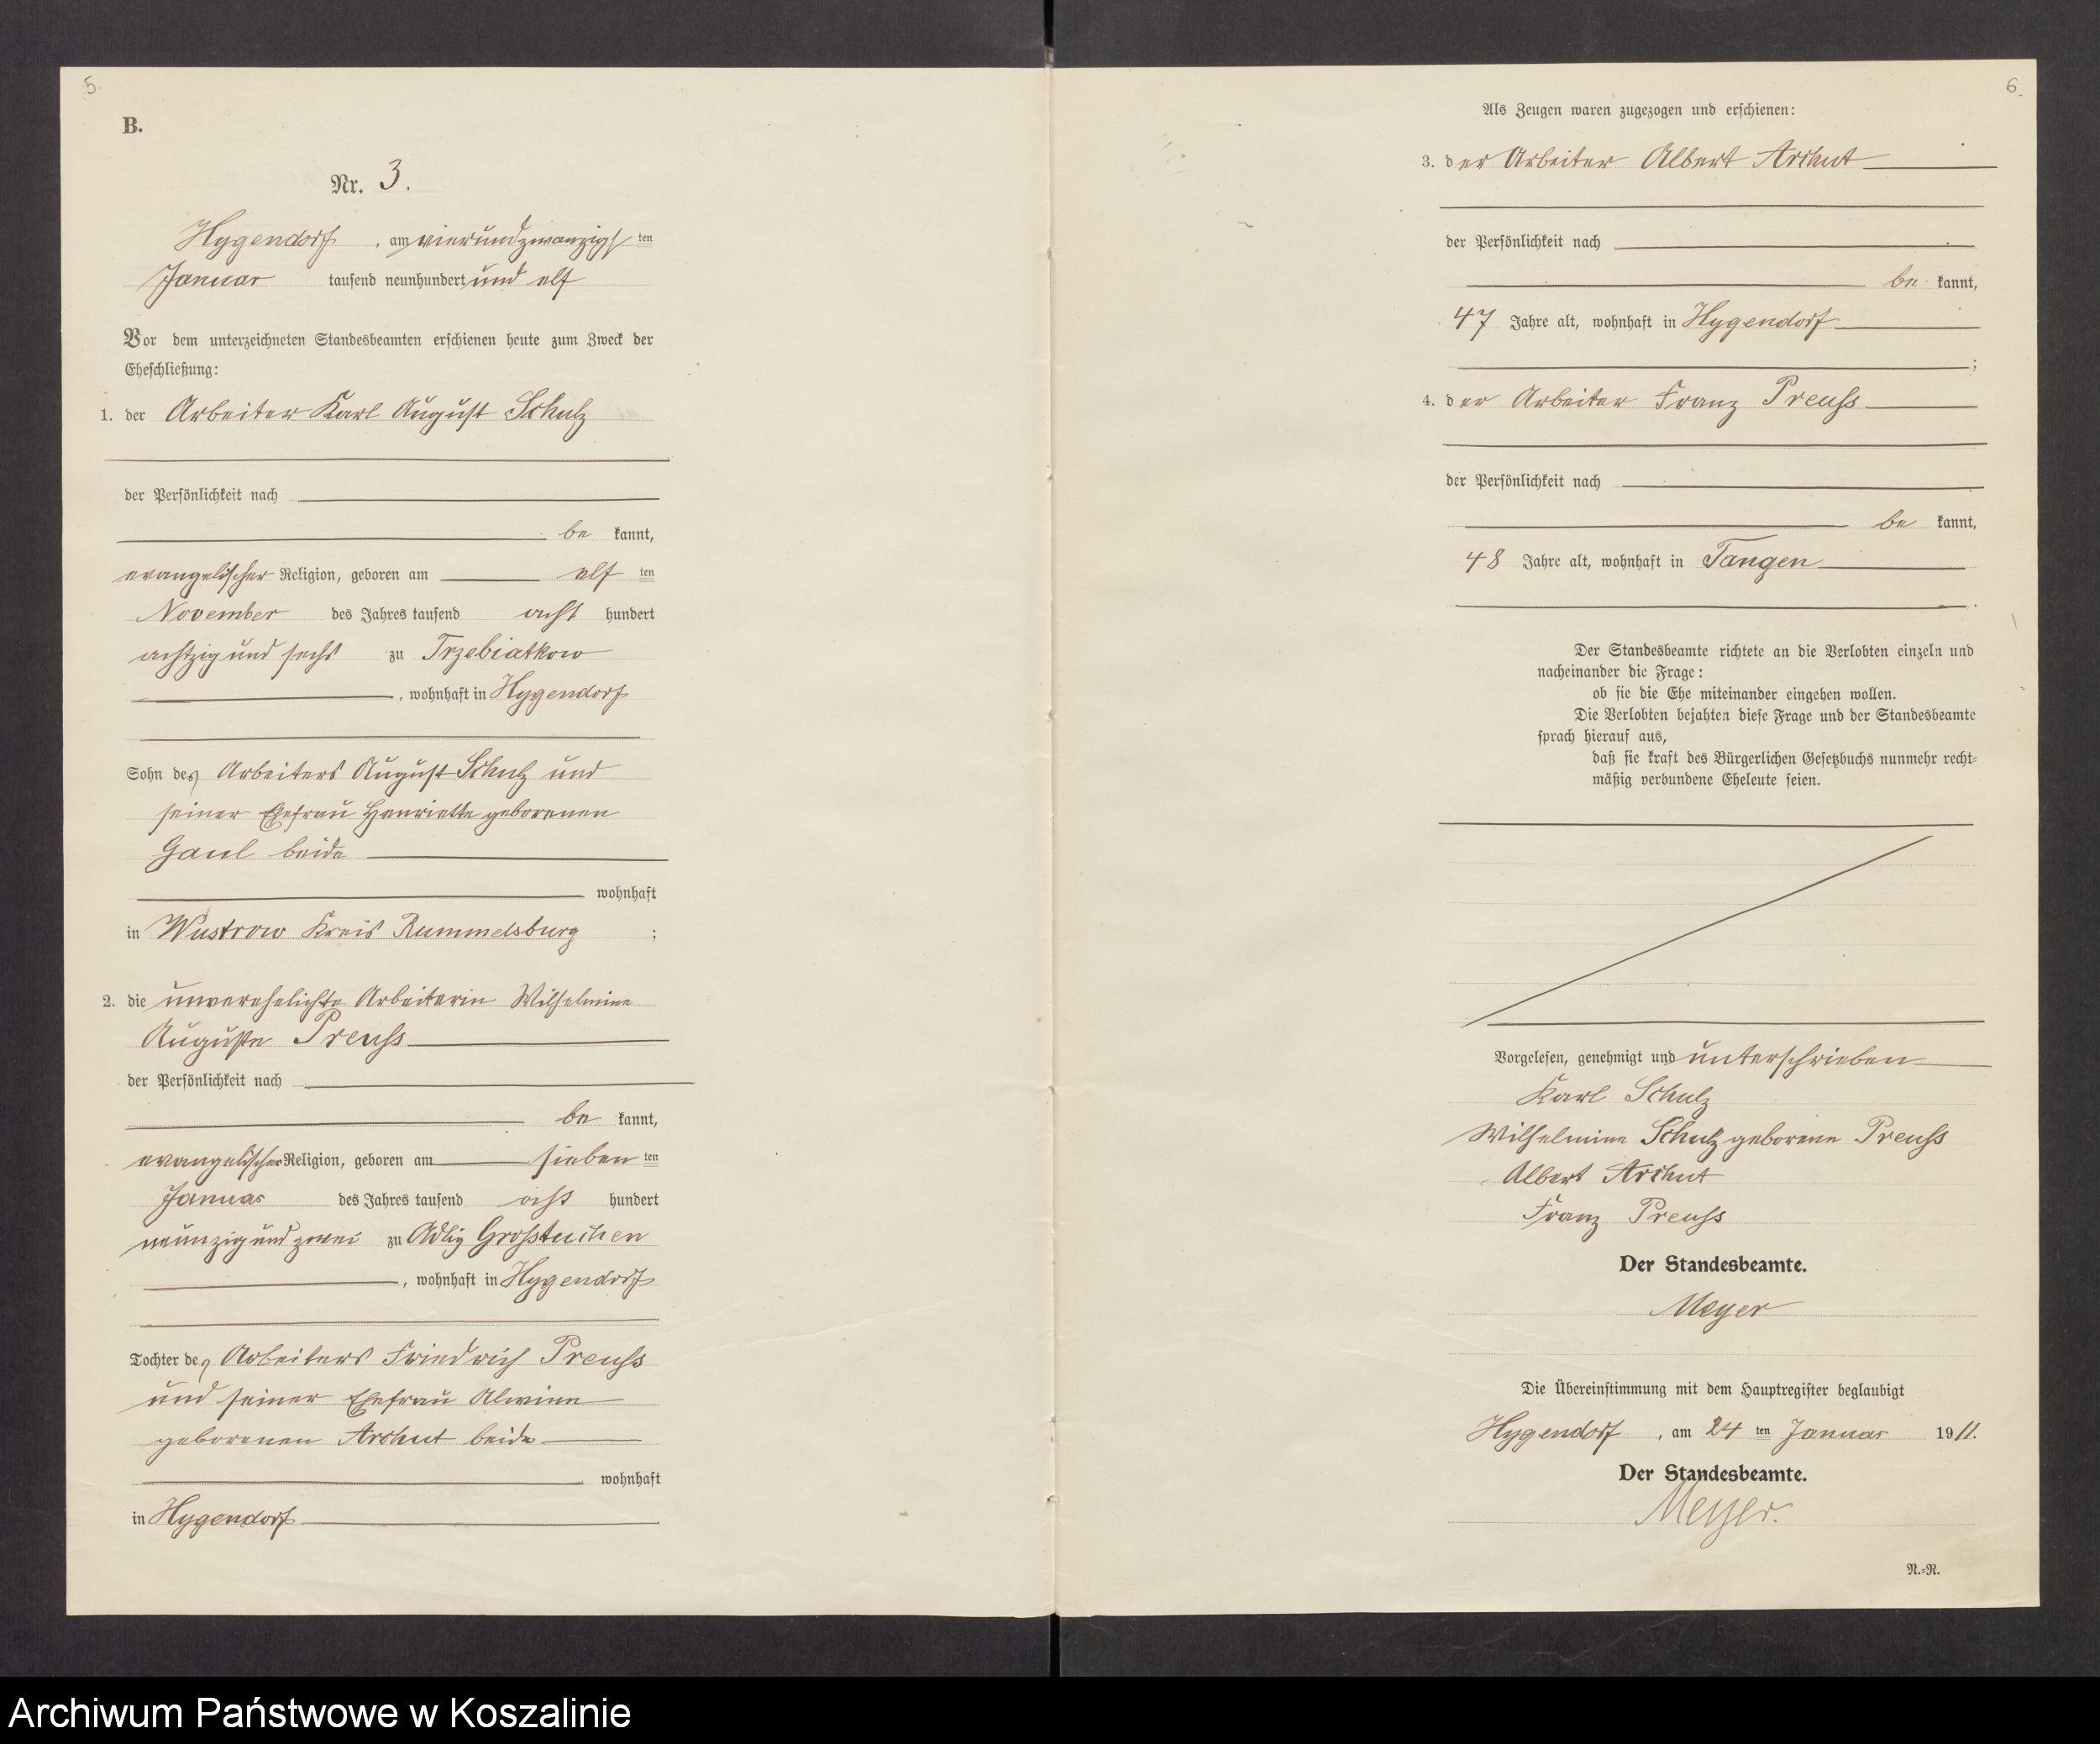 5.
B.
Nr. 3.
Hygendorf, am vierundzwanzigsten
Januar tausend neunhundert und elf
Vor dem unterzeichneten Standesbeamten erschienen heute zum Zweck der
Eheschließung:
1. der Arbeiter Karl August Schulz
der Persönlichkeit nach
be kannt,
evangelischer Religion, geboren am elf ten
November des Jahres tausend acht hundert
achtzig und sechs zu Trzebiatkow
, wohnhaft in Hygendorf
Sohn des Arbeiters August Schulz und
seiner Ehefrau Henriette geborenen
Gaul beide
wohnhaft
in Wustrow Kreis Rummelsburg ;
2. die unverehelichte Arbeiterin Wilhelmine
Auguste Preuß
der Persönlichkeit nach
be kannt,
evangelischer Religion, geboren am sieben ten
Januar des Jahres tausend acht hundert
neunzig und zwei zu Adlig Großtuchen
, wohnhaft in Hygendorf
Tochter des Arbeiters Friedrich Preuß
und seiner Ehefrau Alwine
geborenen Archut beide
wohnhaft
in Hygendorf
6.
Als Zeugen waren zugezogen und erschienen:
3. der Arbeiter Albert Archut
der Persönlichkeit nach
be kannt,
47 Jahre alt, wohnhaft in Hygendorf
;
4. der Arbeiter Franz Preuß
der Persönlichkeit nach
be kannt,
48 Jahre alt, wohnhaft in Tangen
.
Der Standesbeamte richtete an die Verlobten einzeln und
nacheinander die Frage:
ob sie die Ehe miteinander eingehen wollen.
Die Verlobten bejahten diese Frage und der Standesbeamte
sprach hierauf aus,
daß sie kraft des Bürgerlichen Gesetzbuchs nunmehr recht-
mäßig verbundene Eheleute seien.
Vorgelesen, genehmigt und unterschrieben
Karl Schulz
Wilhelmine Schulz geborene Preuß
Albert Archut
Franz Preuß
Der Standesbeamte.
Meyer
Die Übereinstimmung mit dem Hauptregister beglaubigt
Hygendorf, am 24 ten Januar 1911.
Der Standesbeamte.
Meyer.
N.-R.
Archiwum Państwowe w Koszalinie